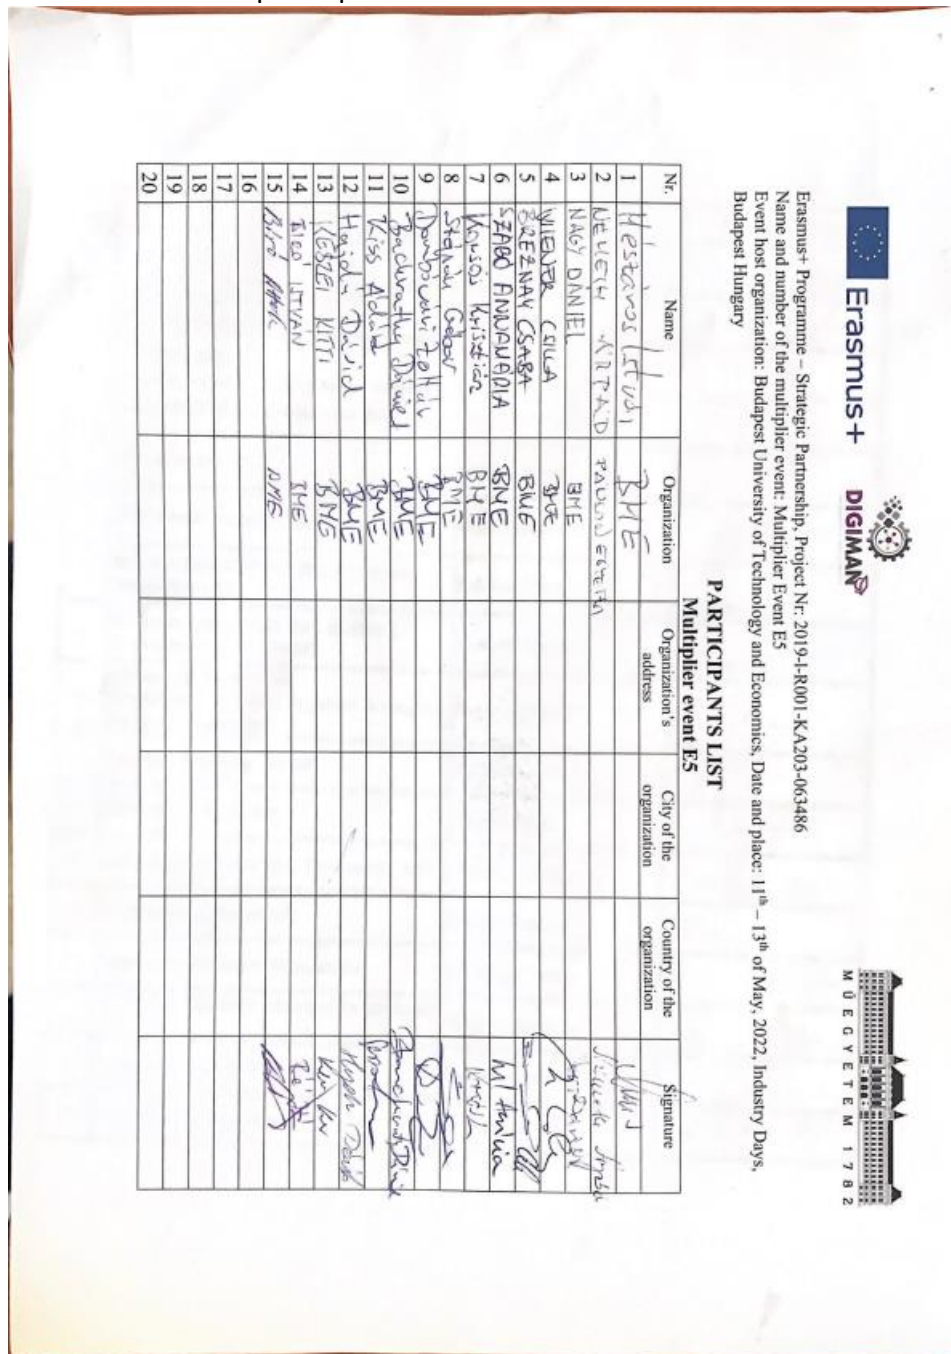 Erasmus+
DIGIMAN
MŰEGYETEM 1782
Erasmus+ Programme – Strategic Partnership, Project Nr. 2019-1-R001-KA203-063486
Name and number of the multiplier event: Multiplier Event E5
Event host organization: Budapest University of Technology and Economics, Date and place: 11th – 13th of May, 2022, Industry Days,
Budapest Hungary
PARTICIPANTS LIST
Multiplier event E5
Nr. Name Organization Organization's address City of the organization Country of the organization Signature
1 Mészáros István BME
2 NÉMETH ÁRPÁD
3 NAGY DÁNIEL BME
4 WIENER CSILLA BME
5 BREZNAY CSABA BME
6 SZABÓ ANNAMÁRIA BME
7 Krisztián BME
8 Gábor BME
9 Dombóvári Zoltán BME
10 Bachrathy Dániel BME
11 Kiss Ádám BME
12 Hajdu Dávid BME
13 KESZEI KITTI BME
14 ISTVÁN BME
15 Bíró BME
16
17
18
19
20